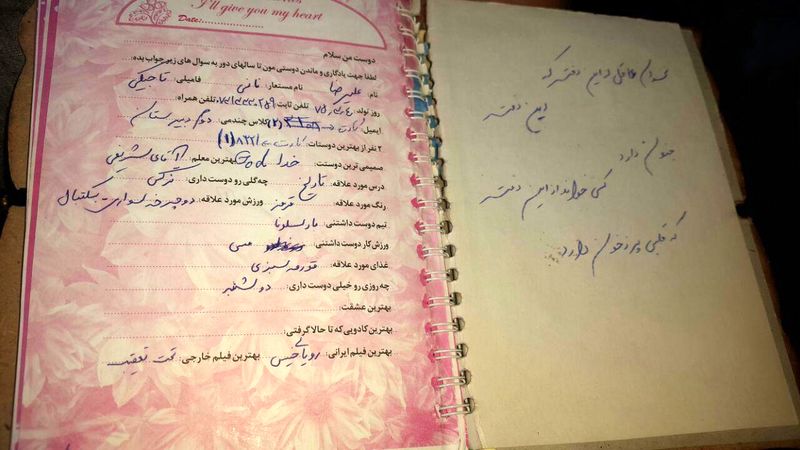 I'll give you my heart
Date:
دوست من سلام
لطفا جهت یادگاری و ماندن دوستی مون تا سالهای دور به سوال های زیر جواب بده.
نام: علیرضا نام مستعار: نانسی فامیلی: تاجیکی
روز تولد: تلفن ثابت: تلفن همراه:
ایمیل: کلاس چندمی: دوم دبیرستان
۲ نفر از بهترین دوستات:
صمیمی ترین دوستت: خدا God بهترین معلم: آقای شریفی
درس مورد علاقه: تاریخ چه گلی رو دوست داری: نرگس
رنگ مورد علاقه: قرمز ورزش مورد علاقه: دوچرخه سواری بسکتبال
تیم دوست داشتنی: بارسلونا
ورزش کار دوست داشتنی: مسی
غذای مورد علاقه: قورمه سبزی
چه روزی رو خیلی دوست داری: دوشنبه
بهترین عشقت:
بهترین کادویی که تا حالا گرفتی:
بهترین فیلم ایرانی: رویای خیس بهترین فیلم خارجی: تحت تعقیب
این دفتر که
این دفتر
خواندن دارد
کسی خواند از این دفتر
که قلبی پر ز خون دارد